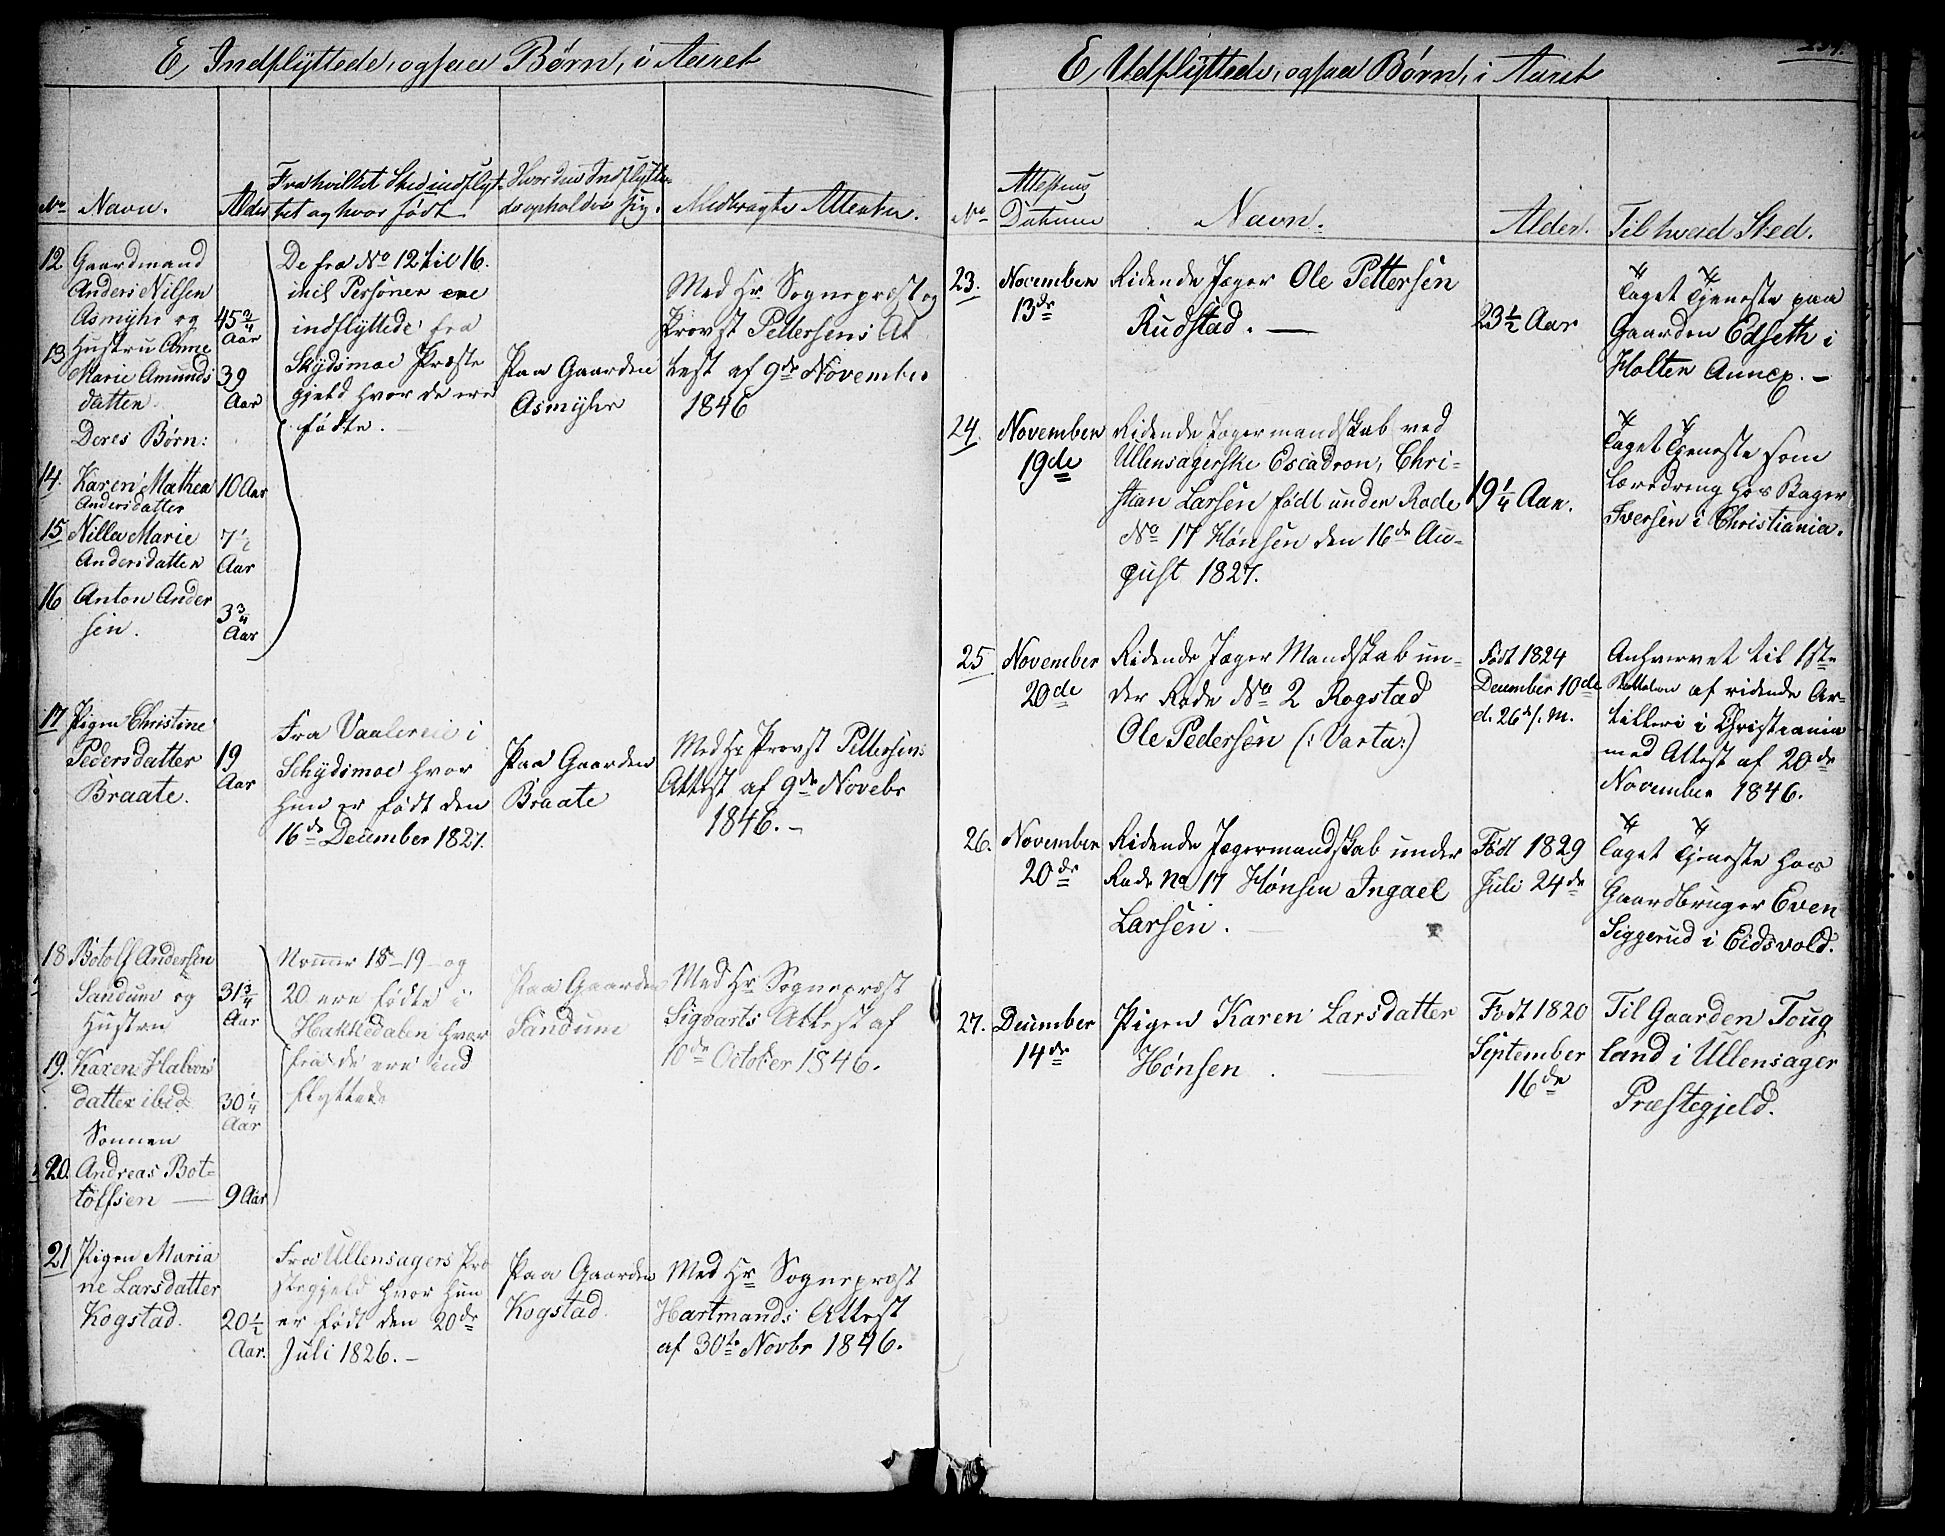 E Indflyttede, ogsaa Børn, i Aaret
No
Navn.
Alder
Fra hvilket Sted indflyt-
tet og hvor født
Hvor den Indflytte-
de opholder sig.
Medbragte Attester.
12
Gaardmand
Anders Nilsen
Asmyhr og
45 3/4
Aar
13
Hustru Anne
Marie Amunds
datter.
39
Aar
Deres Børn:
14.
Karen Mathea
Andersdatter
10 Aar
15
Nille Marie
Andersdatter
7 1/2
Aar
16
Anton Ander
sen.
3 3/4
Aar
De fra No 12 til 16.
incl Personer ere
indflyttede fra
Skydsmoe Præste
gjeld hvor de ere
fødte.
Paa Gaarden
Asmyhr
Med Hr Sognepræst og
Provst Pettersens At
test af 9de November
1846
17
Pigen Christine
Pedersdatter
Braate.
19
Aar
Fra Vaalereie i
Schydsmoe hvor
hun er født den
16de December 1827.
Paa Gaarden
Braate
Med Hr Provst Pettersens
Attest af 9de Novebr
1846. –
18
Botolf Andersen
Sandum og
Hustru
31 3/4
Aar
19.
Karen Halvors
datter ibid
30 1/4
Aar
Sønnen
20.
Andreas Bot-
tolfsen —
9 Aar
Nomer 18–19– og
20 ere fødte i
Hakkedalen hvor
fra de ere ind
flyttede
Paa Gaarden
Sandum
Med Hr Sognepræst
Sigvarts Attest af
10de October 1846.
21
Pigen Maria
ne Larsdatter
Kogstad.
20 1/2
Aar.
Fra Ullensagers Præ
stegjeld hvor hun
er født den 20de
Juli 1826. –
Paa Gaarden
Kogstad.
Med Hr Sognepræst
Hartmands Attest
af 30te Novbr 1846.
E Udflyttede, ogsaa Børn, i Aaret
No
Attestens
Datum
Navn.
Alder.
Til hvad Sted.
23.
November
13de
Ridende Jæger Ole Pettersen
Rudstad. —
23 1/2 Aar
Taget Tjeneste paa
Gaarden Edseth i
Holter Annex. –
24.
November
19de
Ridende Jægermandskab ved
Ullensagerske Escadron, Chri-
stian Larsen født under Rode
No 17 Hønsen den 16de Au-
gust 1827.
19 1/4 Aar.
Taget Tjeneste som
Læredreng hos Bager
Iversen i Christiania.
25
November
20de
Ridende Jæger Mandskab un-
der Rode No 2 Rogstad
Ole Pedersen (: Varta:)
Født 1824
December 10de
d. 26 d. s. M.
Anhvervet til 1ste
af ridende Ar-
tilleri i Christiania
med Attest af 20de
November 1846.
26.
November
20de
Ridende Jægermandskab under
Rode No 17 Hønsen Ingael
Larsen.
Født 1829
Juli 24de
Taget Tjeneste hos
Gaardbruger Even
Siggerud i Eidsvold.
27.
December
14de
Pigen Karen Larsdatter
Hønsen.
Født 1820
September
16de
Til Gaarden Toug
land i Ullensager
Præstegjeld.